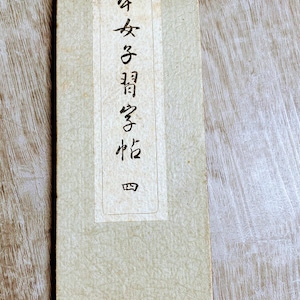 女子習字帖 四